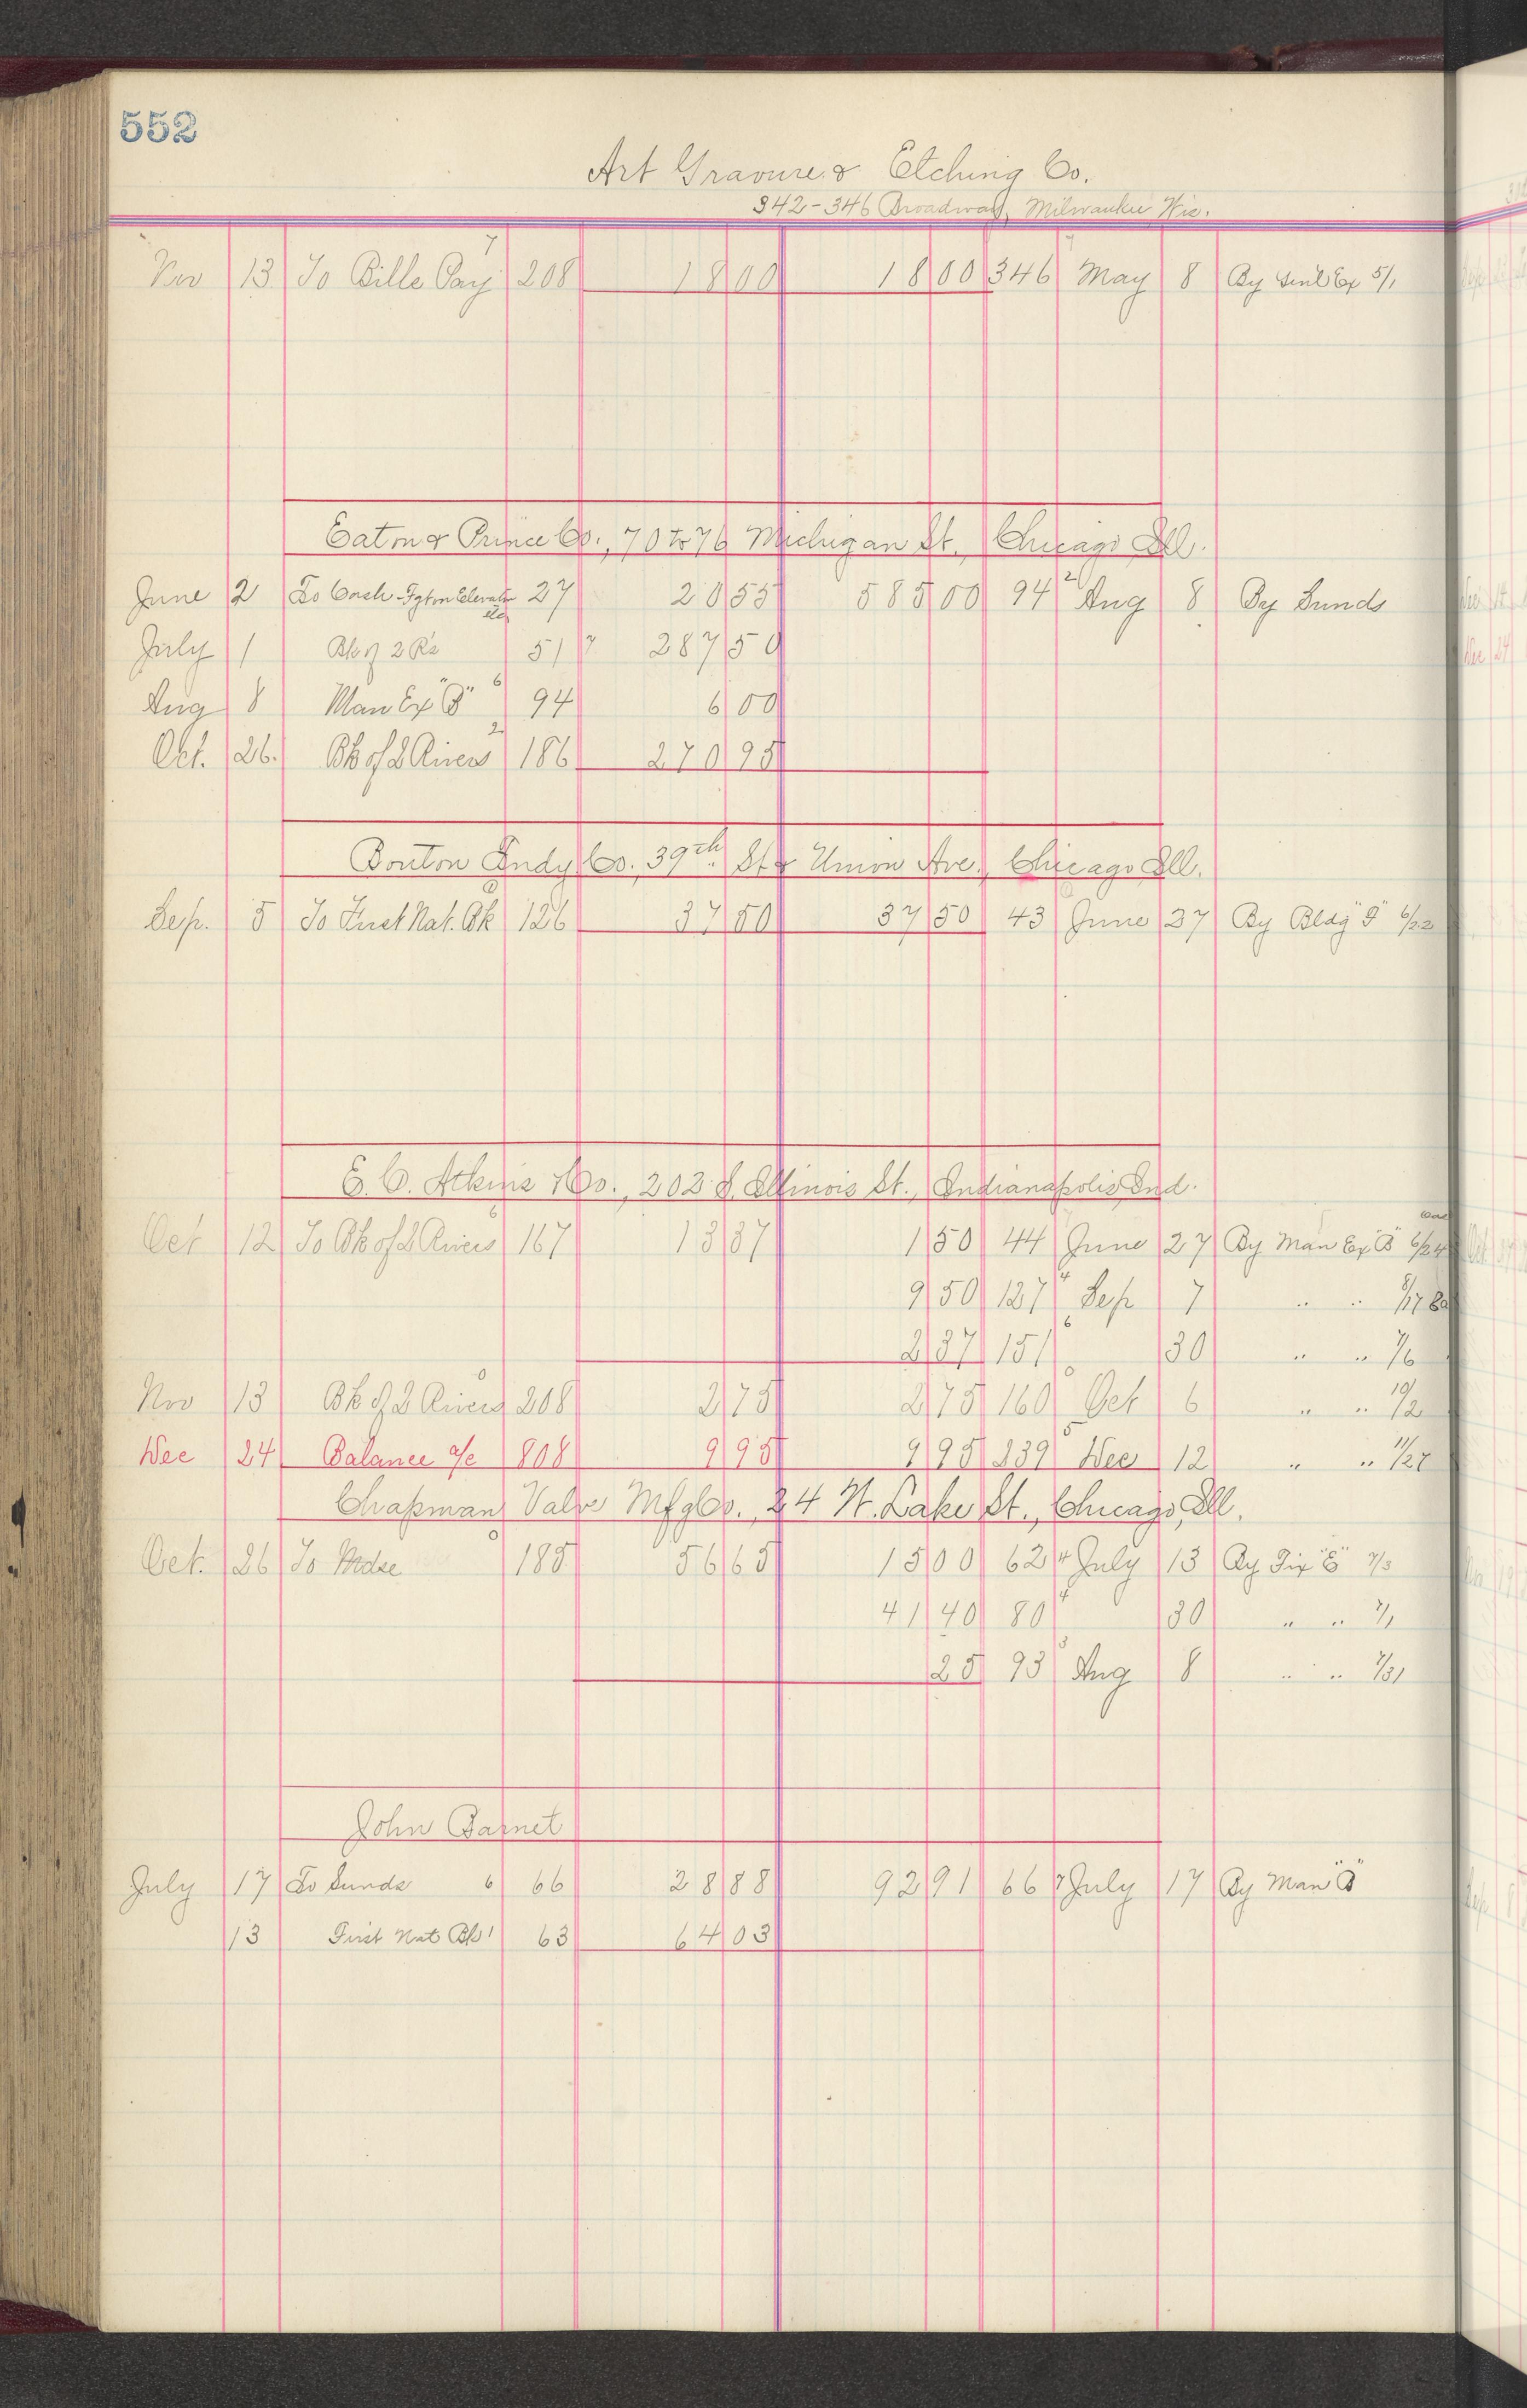 552
Art Gravure & Etching Co.
342-346 Broadway, Milwaukee Wis.
Nov 13 To Bills Pay 7 208 18 00 18 00 346 7 May 8 By Genl Ex 5/1
Eaton & Prince Co., 70 to 76 Michigan St., Chicago Ill.
June 2 To Cash - Fgt on Elevator 27 20 55 585 00 94 2 Aug 8 By Sunds
July 1 Bk of 2 R's 51 7 287 50
Aug 8 Man Ex "B" 6 94 6 00
Oct. 26. Bk of 2 Rivers 2 186 270 95
Bouton Fndy Co., 39th. St & Union Ave., Chicago Ill.
Sep. 5 To First Nat. Bk 126 37 50 37 50 43 June 27 By Bldg "I" 6/22
E. C. Atkins & Co., 202 S. Illinois St., Indianapolis, Ind.
Oct 12 To Bk of 2 Rivers 6 167 13 37 1 50 44 June 27 By Man Ex "B" 6/24
9 50 127 4 Sep 7 " " 8/17
2 37 151 6 30 " " 7/6
Nov 13 Bk of 2 Rivers 208 2 75 2 75 160 Oct 6 " " 10/2
Dec 24 Balance a/c 808 9 95 9 95 239 5 Dec 12 " " 11/27
Chapman Valve Mfg Co., 24 W. Lake St., Chicago, Ill.
Oct. 26 To Mdse 185 56 65 15 00 62 4 July 13 By Fix "E" 7/3
41 40 80 4 30 " " 7/1
25 93 3 Aug 8 " " 7/31
John Barnet
July 17 To Sunds 6 66 28 88 92 91 66 7 July 17 By Man "B"
13 First Nat Bk 1 63 64 03